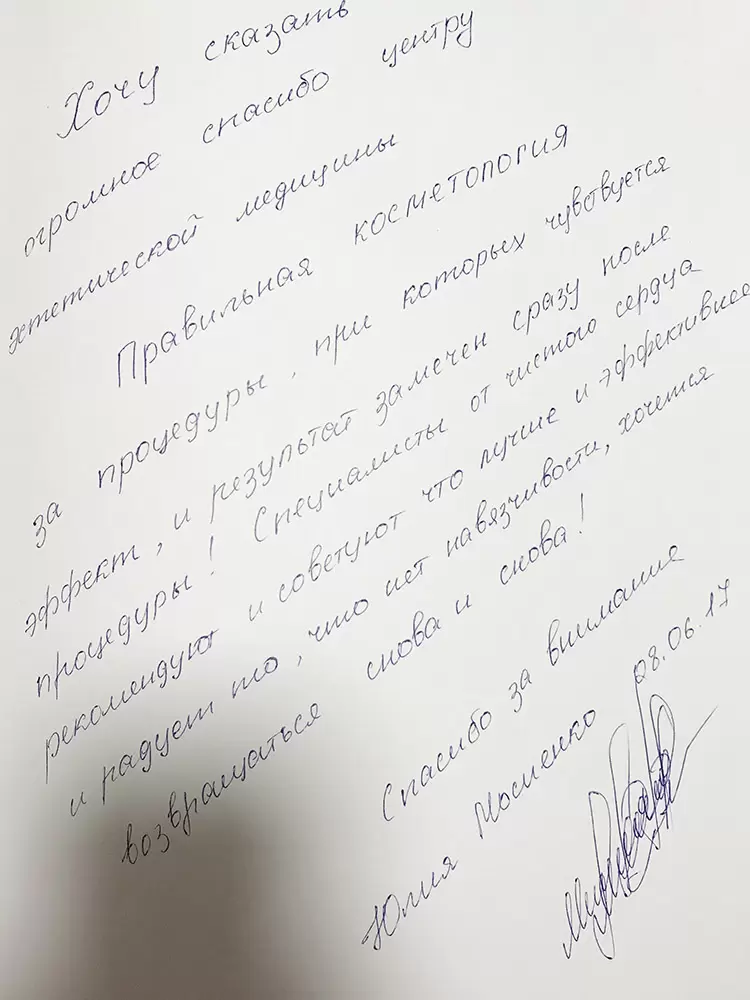 Хочу сказать
огромное спасибо центру
эстетической медицины
Правильная косметология
за процедуры, при которых чувствуется
эффект, и результат замечен сразу после
процедуры! Специалисты от чистого сердца
рекомендуют и советуют что лучше и эффективнее
и радует то, что нет навязчивости, хочется
возвращаться снова и снова!
Спасибо за внимание
Юлия 08.06.17